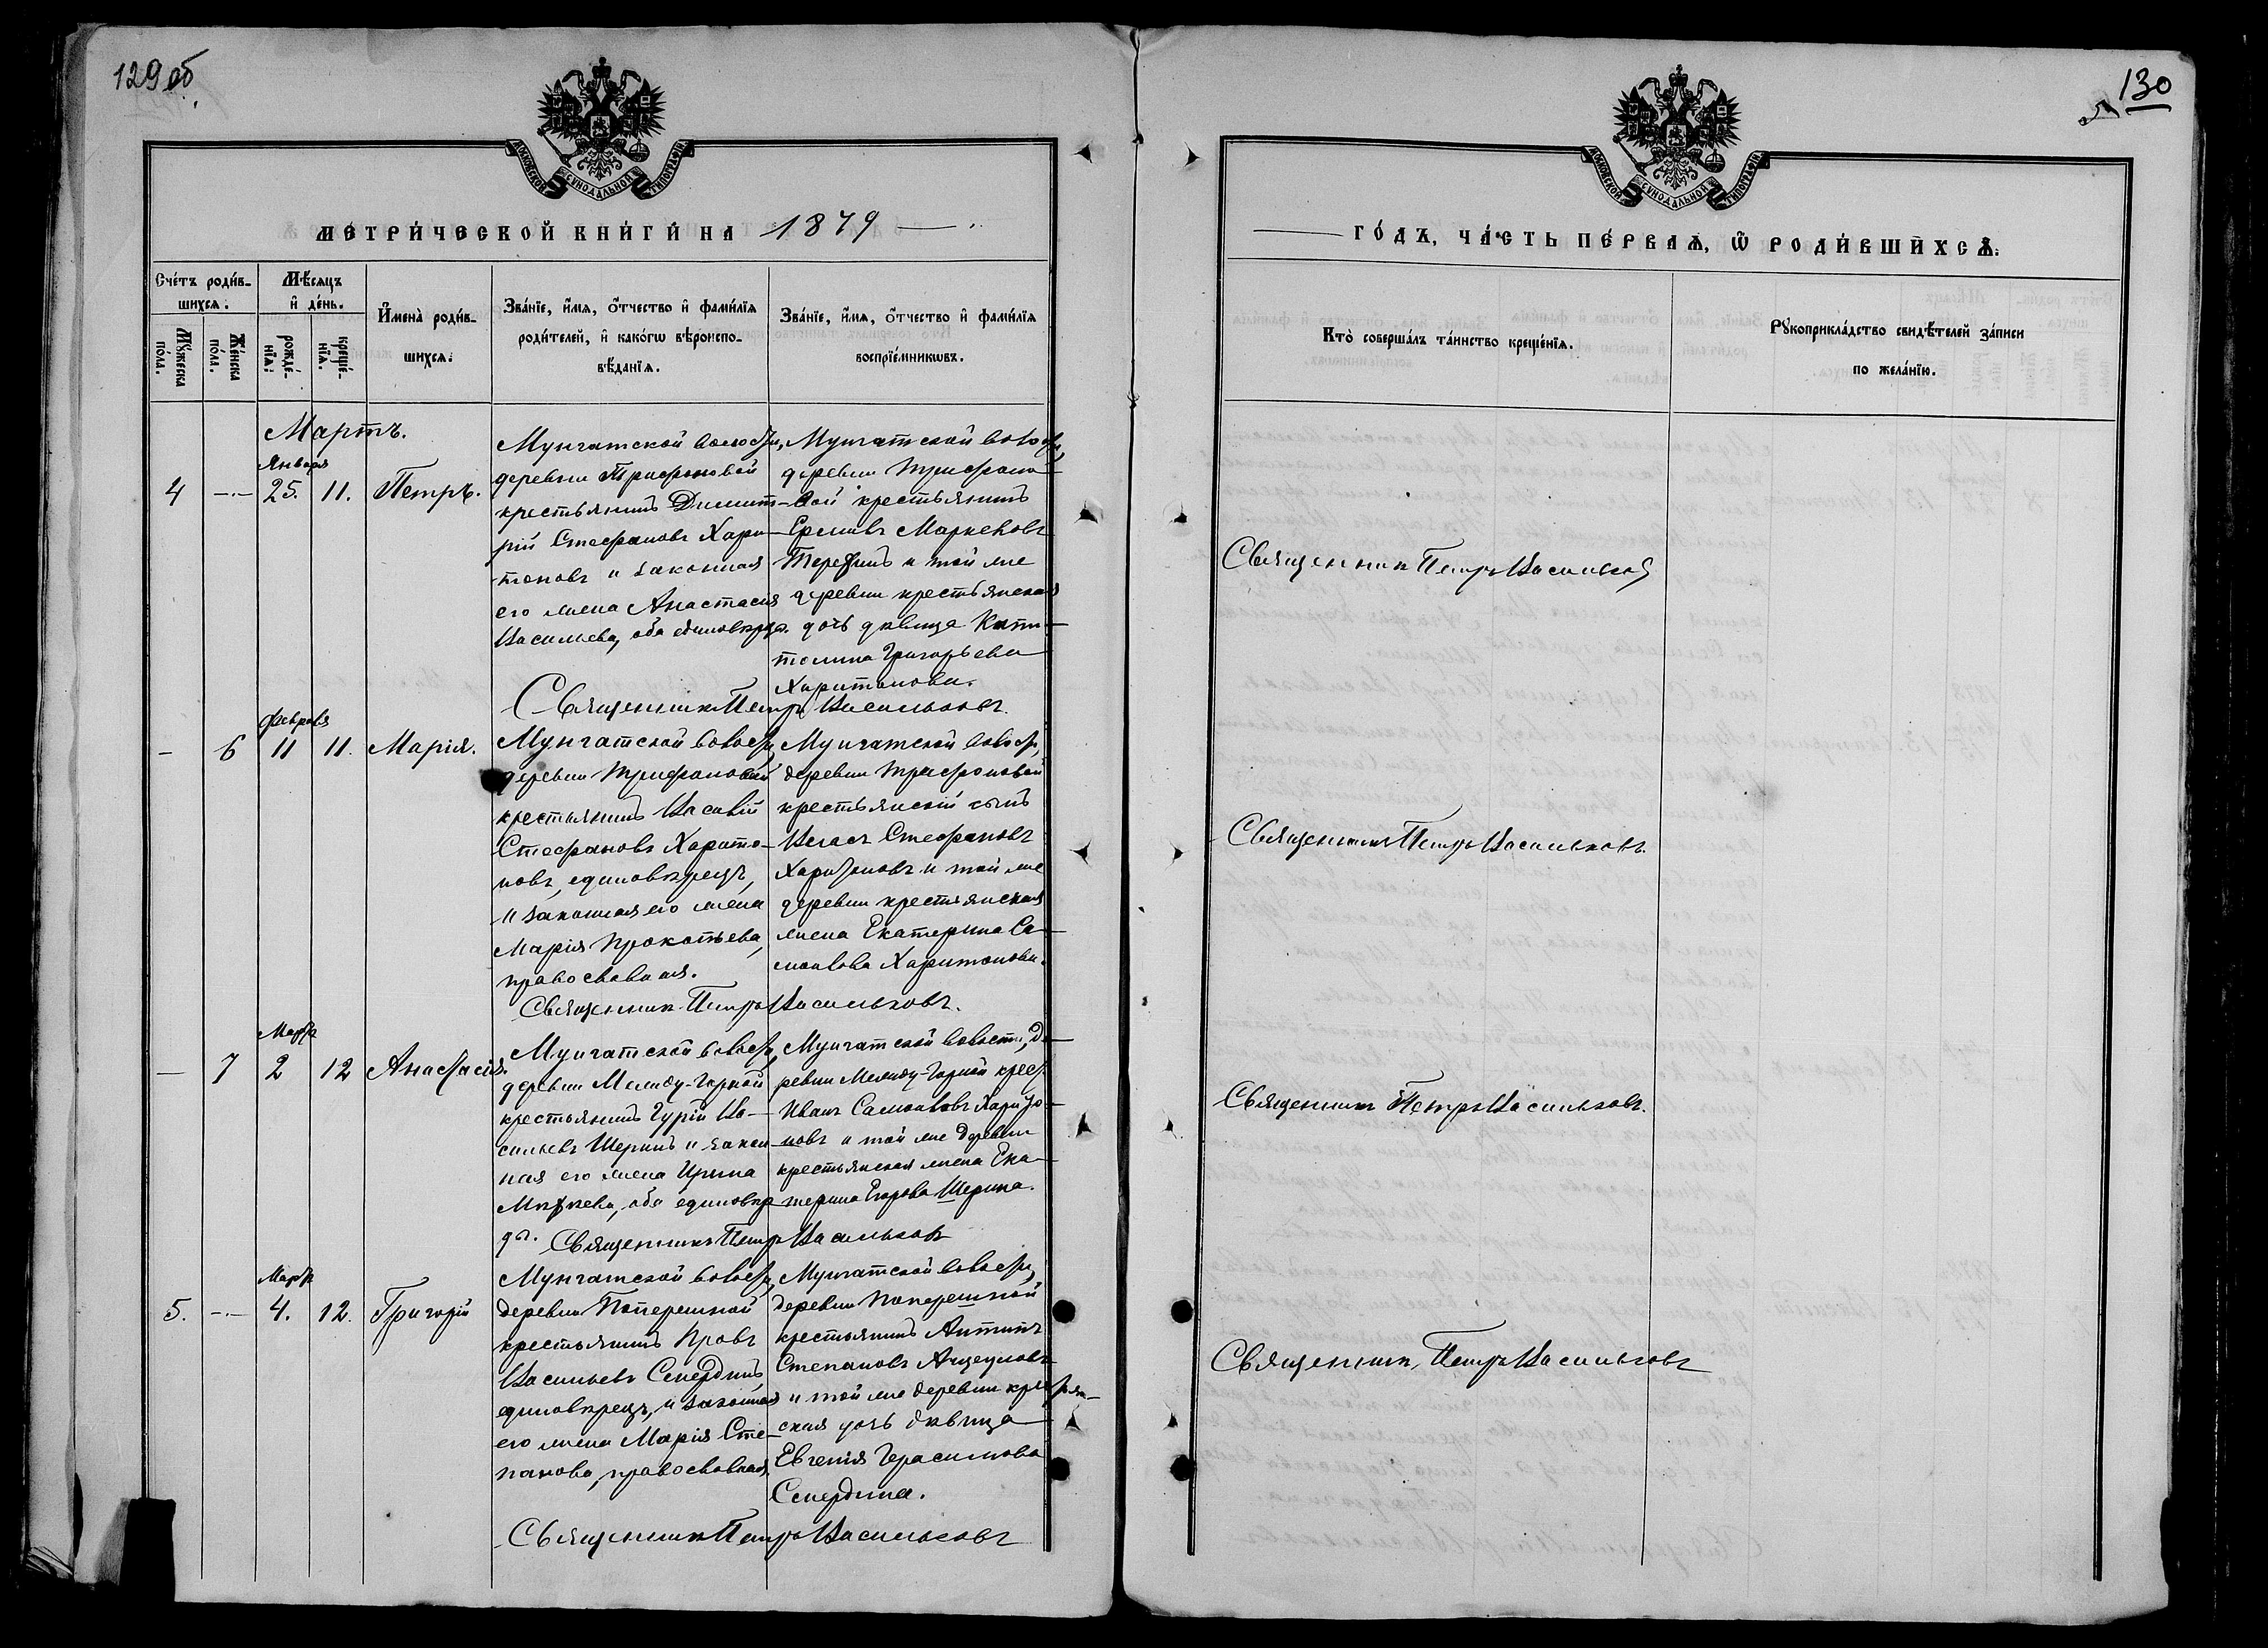 129об
130
МОСКОВСКОЙ СѴНОДАЛЬНОЙ ТИПОГРАФІИ
МЕТРИ́ЧЕСКОЙ КНИ́ГИ НА 1879
Сче́тъ роди́в-
шихся.
Мꙋ́жеска по́ла.
Же́нска по́ла.
Мѣ́сяцъ
и҆ де́нь.
рожде́-
нїѧ.
креще́-
нїѧ.
И҆мена̀ роди́в-
шихсѧ.
Зва́нїе, и҆́мѧ, ѻ҆́тчество и҆ фами́лїѧ
роди́телей, и҆ како́гѡ вѣроиспо-
вѣ́данїѧ.
Зва́нїе, и҆́мѧ, ѻ҆́тчество и҆ фами́лїѧ
воспрїе́мникѡвъ.
Мартъ.
Января
4 -.- 25. 11. Петръ.
Мунгатской волости,
деревни Трифоновой
крестьянинъ Димит-
рій Стефановъ Хари-
тоновъ и законная
его жена Анастасія
Васильева, оба единовѣрцы.
Мунгатской волости,
деревни Трифоно-
вой крестьянинъ
Ермилъ Маркеловъ
и той же
деревни крестьянская
дочь дѣвица Капи-
толина Григорьева
Харитонова.
Священникъ Петръ Васильковъ.
Февраля
- 6 11 11. Марія.
Мунгатской волости,
деревни Трифоновой
крестьянинъ Василій
Стефановъ Харито-
новъ, единовѣрецъ,
и законная его жена
Марія Прокопьева,
православная.
Мунгатской волости,
деревни Трифоновой
крестьянскій сынъ
Власъ Стефановъ
Харитоновъ и той же
деревни крестьянская
жена Екатерина Са-
мойлова Харитонова.
Священникъ Петръ Васильковъ.
Марта
- 7 2 12 Анастасія.
Мунгатской волости,
деревни Между-Горной
крестьянинъ Гурій Ва-
сильевъ Шеринъ и закон-
ная его жена Ирина
оба единовѣр-
цы.
Мунгатской волости, де-
ревни Между-Горной крест.
Иванъ Самойловъ Харито-
новъ и той же деревни
крестьянская жена Ека-
терина Егорова Шерина.
Священникъ Петръ Васильковъ
Марта
5. -.- 4. 12. Григорій
Мунгатской волости,
деревни Поперешной
крестьянинъ Провъ
Васильевъ Сердинъ,
единовѣрецъ, и законная
его жена Марія Сте-
панова, православная.
Мунгатской волости,
деревни Поперешной
крестьянинъ Антипъ
Степановъ
и той же деревни крестьян-
ская дочь дѣвица
Евгенія Герасимова
Священникъ Петръ Васильковъ
МОСКОВСКОЙ СѴНОДАЛЬНОЙ ТИПОГРАФІИ
ГО́ДЪ, ЧА́СТЬ ПЕ́РВАѦ, Ѡ҆ РОДИ́ВШИХСѦ.
Кто̀ соверша́лъ та́инство креще́нїѧ.
Рꙋкоприкла́дство свидѣ́телей за́писи
по жела́нїю.
Священникъ Петръ Васильковъ
Священникъ Петръ Васильковъ.
Священникъ Петръ Васильковъ.
Священникъ Петръ Васильковъ